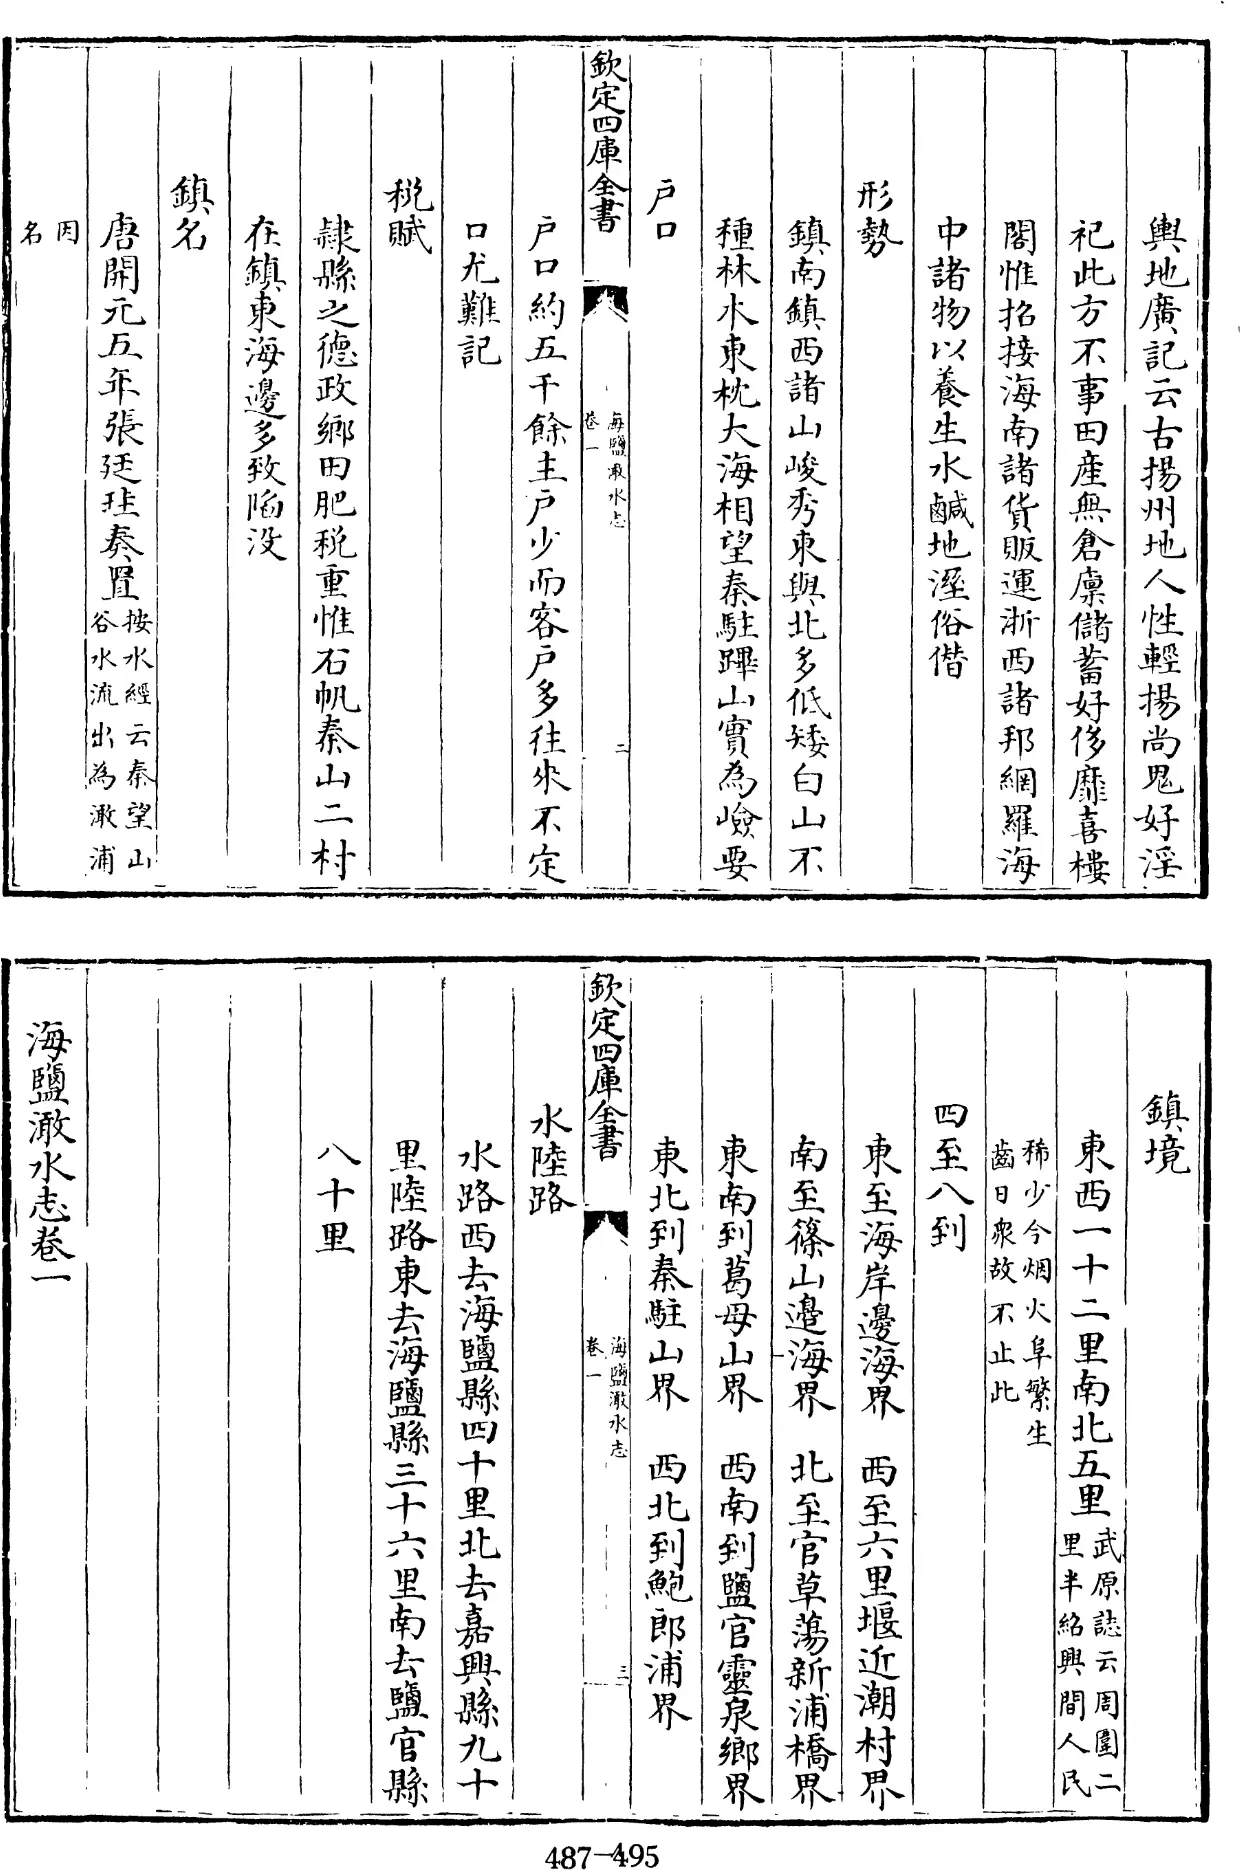 輿地廣記云古揚州地人性輕揚尚鬼好淫
祀此方不事田產無倉廪儲蓄好侈靡喜樓
閣惟招接海南諸貨販運浙西諸邦網羅海
中諸物以養生水鹹地溼俗僭
形勢
鎮南鎮西諸山峻秀東與北多低矮白山不
種林木東枕大海相望秦駐蹕山實為嶮要
戶口
欽定四庫全書
海鹽澉水志
卷一
二
戶口約五千餘主戶少而客戶多往來不定
口尤難記
稅賦
隷縣之德政鄉田肥稅重惟石帆秦山二村
在鎮東海邊多致陷没
鎮名
唐開元五年張廷珪奏置按水經云秦望山
谷水流出為澉浦
因
名
鎮境
東西一十二里南北五里武原誌云周圍二
里半紹興間人民
稀少今烟火阜繁生
齒日衆故不止此
四至八到
東至海岸邊海界 西至六里堰近潮村界
南至篠山邉海界 北至官草蕩新浦橋界
東南到葛母山界 西南到鹽官靈泉鄉界
東北到秦駐山界 西北到鮑郎浦界
欽定四庫全書
海鹽澉水志
卷一
三
水陸路
水路西去海鹽縣四十里北去嘉興縣九十
里陸路東去海鹽縣三十六里南去鹽官縣
八十里
海鹽澉水志卷一
487-495